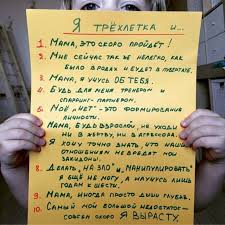 Я ТРЁХЛЕТКА И...
1. МАМА, ЭТО СКОРО ПРОЙДЁТ!
2. МНЕ СЕЙЧАС ТАК ЖЕ НЕЛЕГКО, КАК
БЫЛО В РОДАХ И БУДЕТ В ПУБЕРТАТЕ.
3. МАМА, Я УЧУСЬ ОБ ТЕБЯ.
4. БУДЬ ДЛЯ МЕНЯ ТРЕНЕРОМ И
СПАРРИНГ-ПАРТНЕРОМ.
5. МОЁ „НЕТ" - ЭТО ФОРМИРОВАНИЕ
ЛИЧНОСТИ.
МАМА, БУДЬ ВЗРОСЛОЙ, НЕ УХОДИ
НИ В ЖЕРТВУ, НИ В АГРЕССОРА.
Я ХОЧУ ТОЧНО ЗНАТЬ, ЧТО НАШИМ
ОТНОШЕНИЯМ НЕ ВРЕДЯТ МОИ
ЗАКИДОНЫ.
8. ДЕЛАТЬ „НА ЗЛО" И „МАНИПУЛИРОВАТЬ"
Я ЕЩЁ НЕ МОГУ, А НАУЧУСЬ ЛИШЬ
ГОДАМ К ШЕСТИ.
9. МАМА, ИНОГДА ПРОСТО ДЫШИ ГЛУБЖЕ.
10. САМЫЙ МОЙ БОЛЬШОЙ НЕДОСТАТОК -
СОВСЕМ СКОРО Я ВЫРАСТУ.